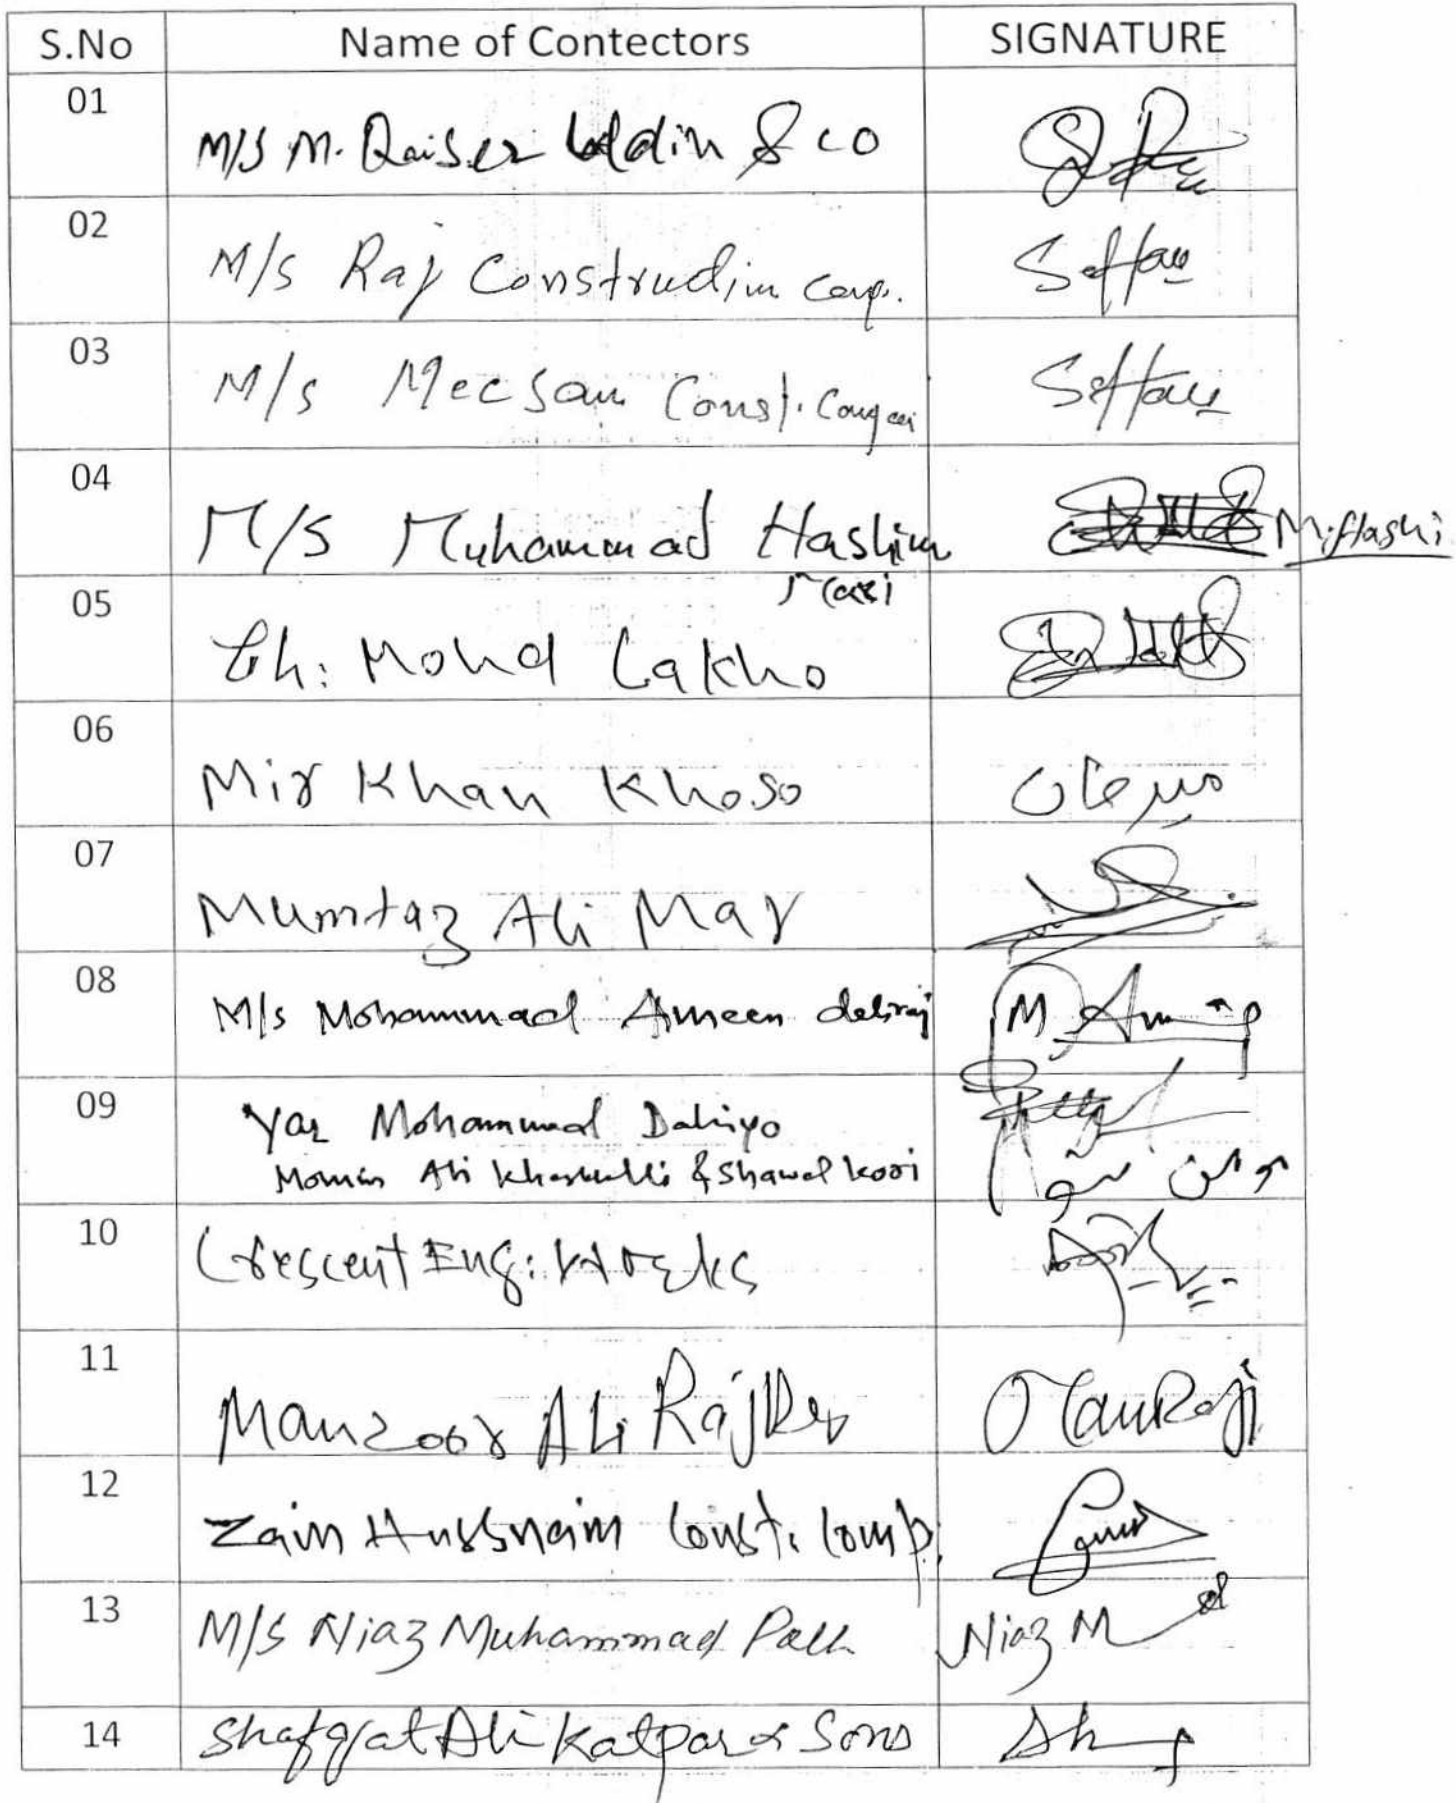 S.No Name of Contectors SIGNATURE
01 M/S M. Qaiser Uddin & co
02 M/s Raj Construction Corp. Sattar
03 M/s Mecsan Const. Sattar
04 M/S Muhammad Hashim M. Hashi
05 Gh: Mohd Lakho
06 Mir Khan Khoso میرخان
07 Mumtaz Ali Mar
08 M/s Mohammad Ameen M. Amin
09 Yar Mohammad Dahiyo
Momin Ali Khaskhelli & Shawal kori
10 Crescent Eng: Works
11 Manzoor Ali Rajper
12 Zain Hussnain Const. Comp:
13 M/S Niaz Muhammad Niaz M
14 Shafqat Ali Katpar & Sons Sh